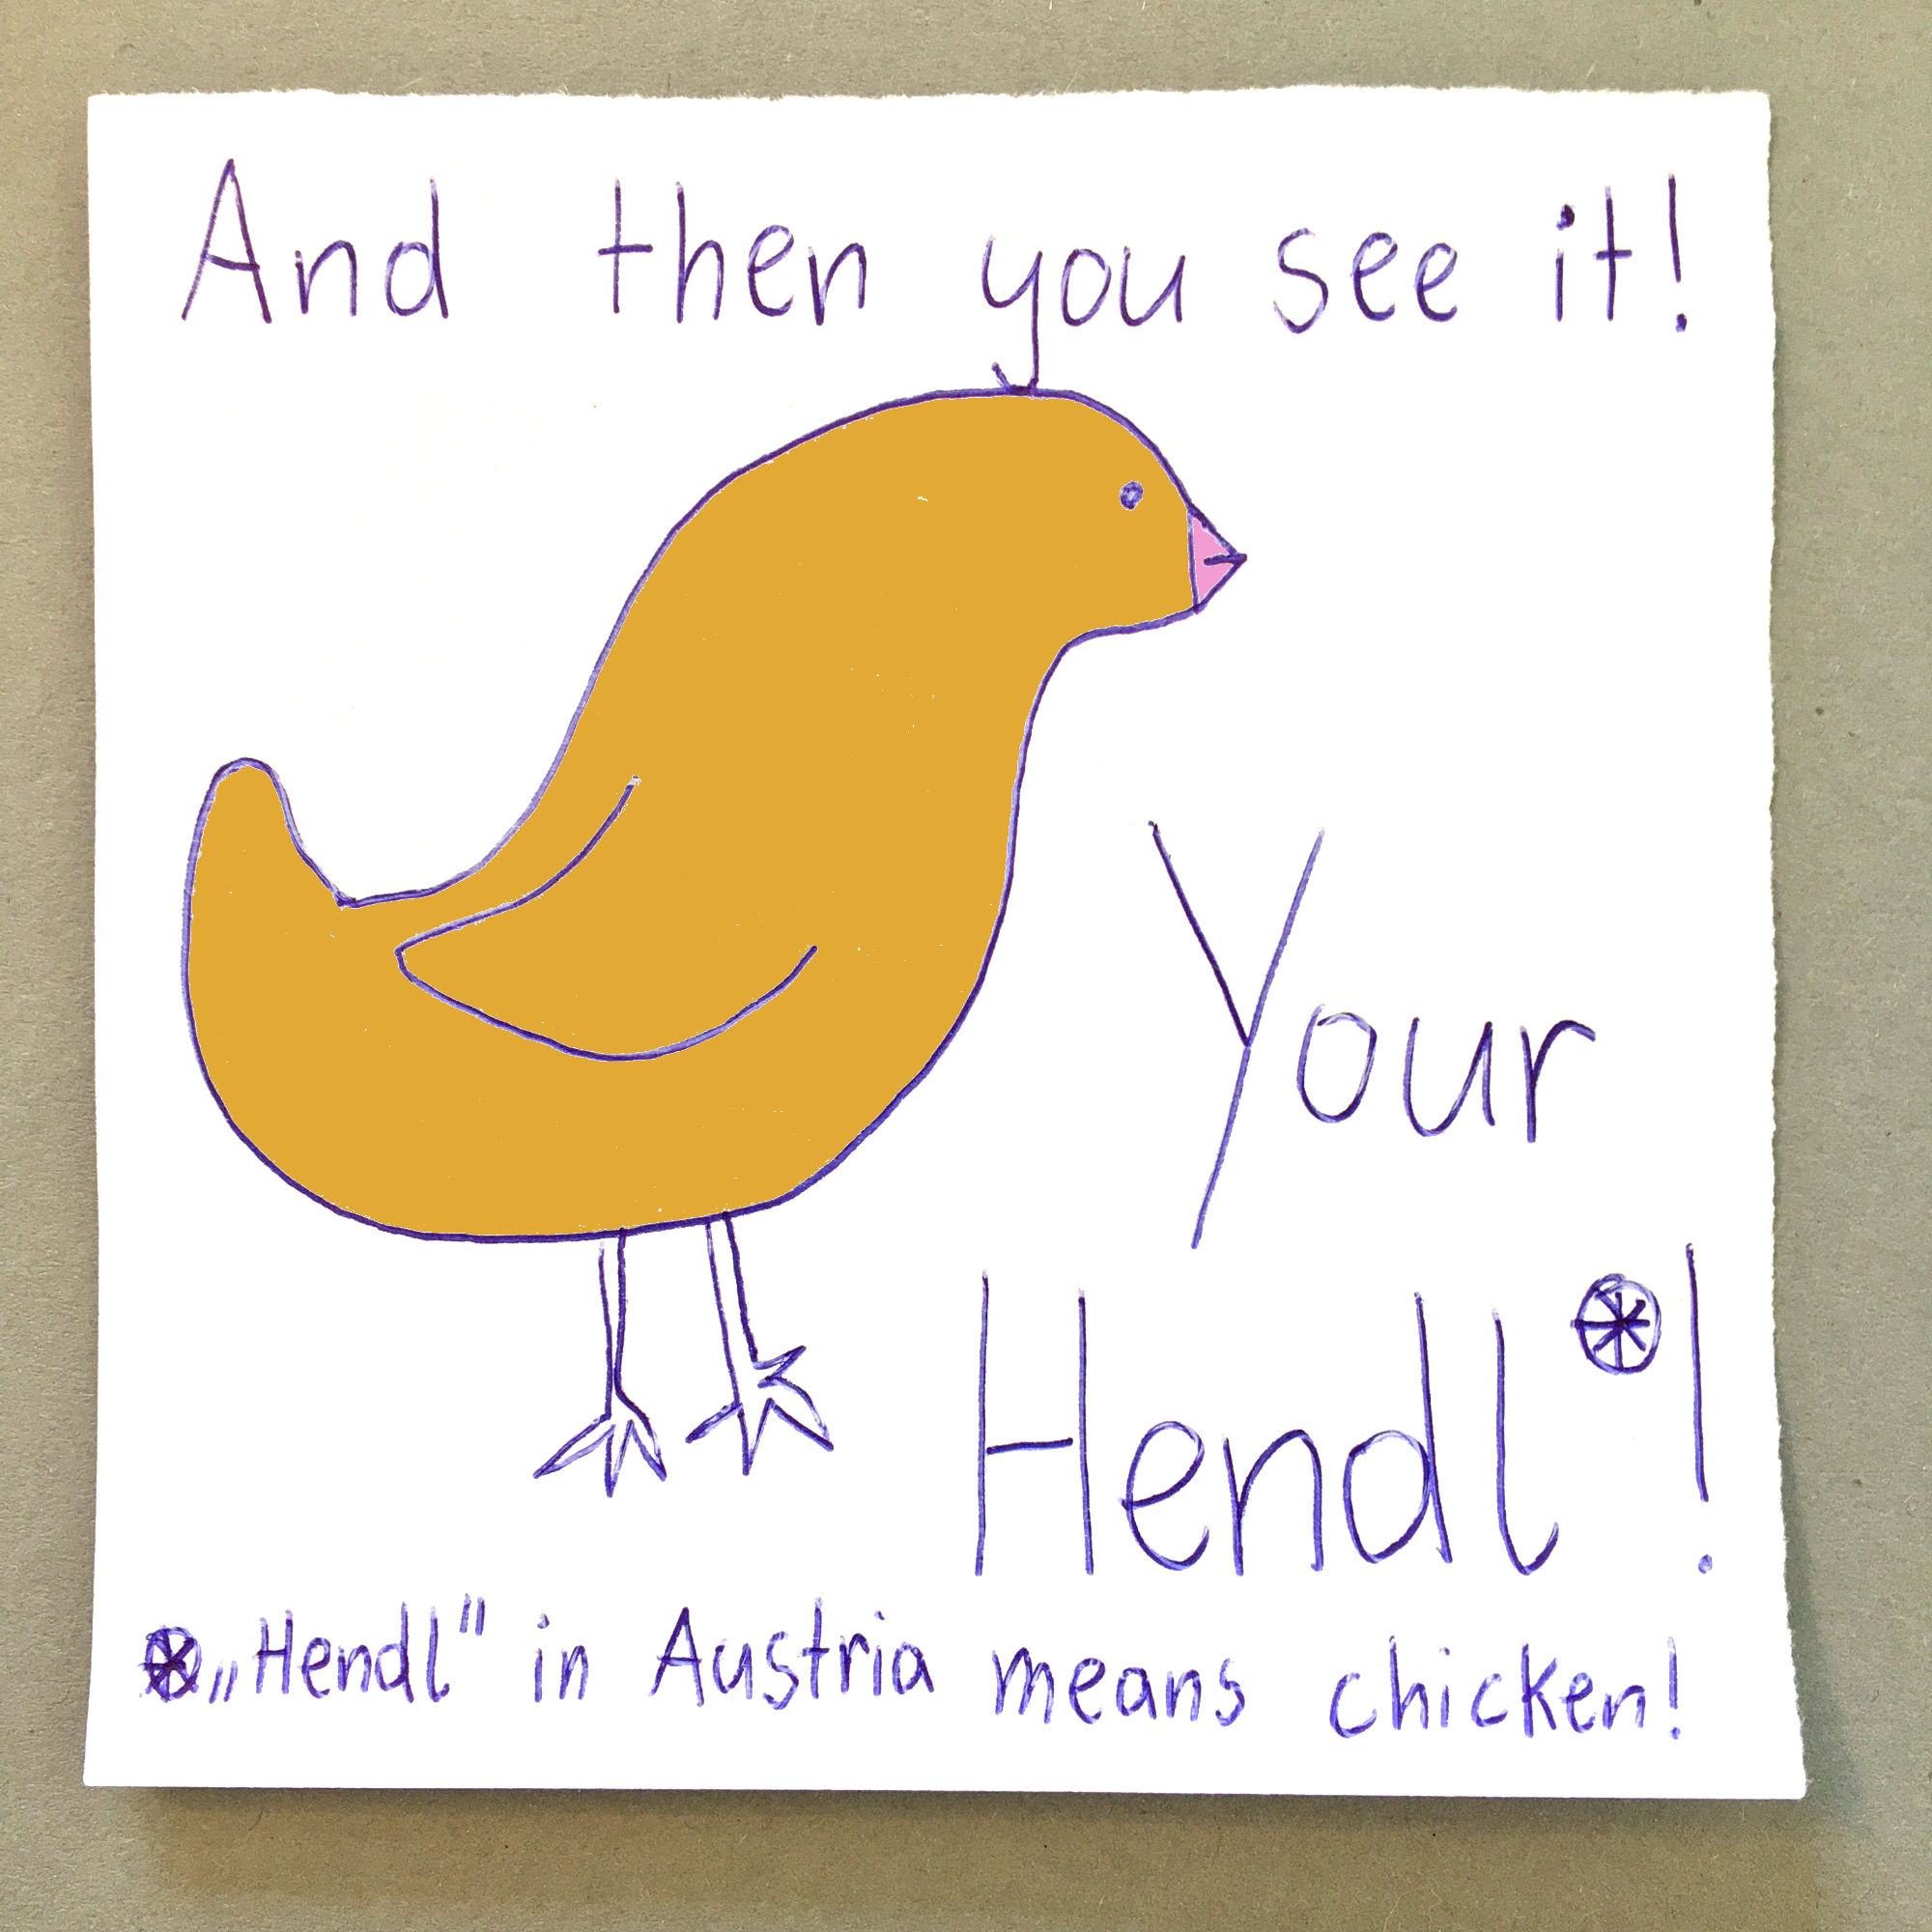 And then you see it!
Your
Hendl*!
*„Hendl" in Austria means chicken!